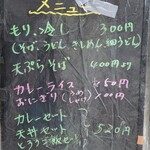 メニュー
もり、冷し 300円
(そば、うどん きしめん、細うどん)
天ぷらそば 400円
カレーライス 450円
おにぎり
カレーセット
天丼セット 520円
とろろご飯セット